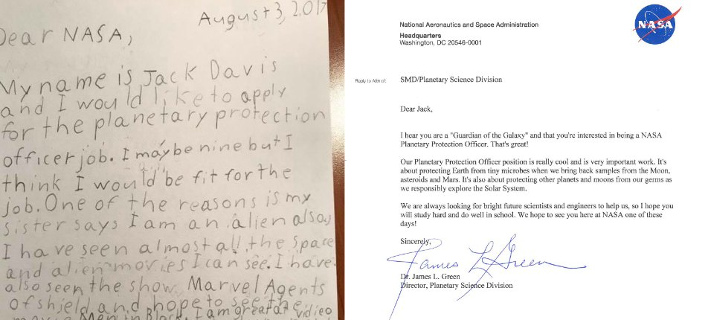 August 3, 2017
Dear NASA,
My name is Jack Davis
and I would like to apply
for the planetary protection
officer job. I may be nine but I
think I would be fit for the
job. One of the reasons is my
sister says I am an alien also
I have seen almost all the space
and alien movies I can see. I have
also seen the show Marvel Agents
of shield and hope to see the
Men in Black. I am great at vidieo
National Aeronautics and Space Administration
Headquarters
Washington, DC 20546-0001
NASA
Reply to Attn of:
SMD/Planetary Science Division
Dear Jack,
I hear you are a "Guardian of the Galaxy" and that you're interested in being a NASA
Planetary Protection Officer. That's great!
Our Planetary Protection Officer position is really cool and is very important work. It's
about protecting Earth from tiny microbes when we bring back samples from the Moon,
asteroids and Mars. It's also about protecting other planets and moons from our germs as
we responsibly explore the Solar System.
We are always looking for bright future scientists and engineers to help us, so I hope you
will study hard and do well in school. We hope to see you here at NASA one of these
days!
Sincerely,
James L Green
Dr. James L. Green
Director, Planetary Science Division